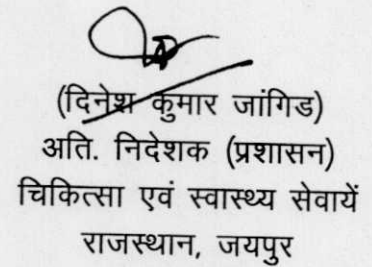 (दिनेश कुमार जांगिड)
अति. निदेशक (प्रशासन)
चिकित्सा एवं स्वास्थ्य सेवायें
राजस्थान, जयपुर